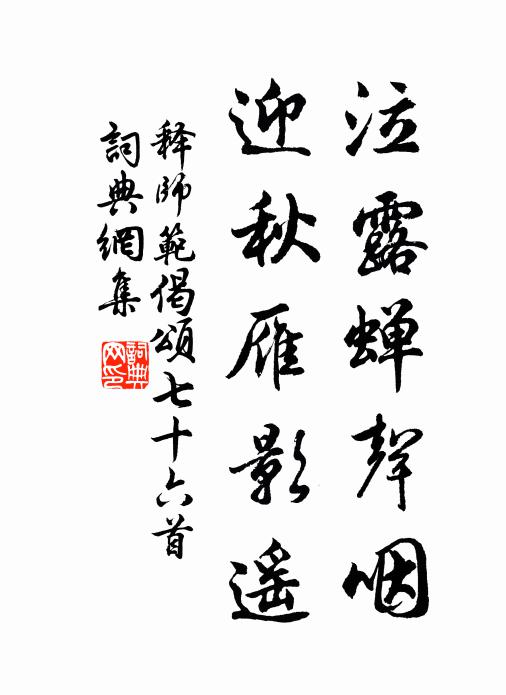 泣露蝉聲咽
迎秋雁影遥
释師範偈頌七十六首
詞典網集
詞典网印